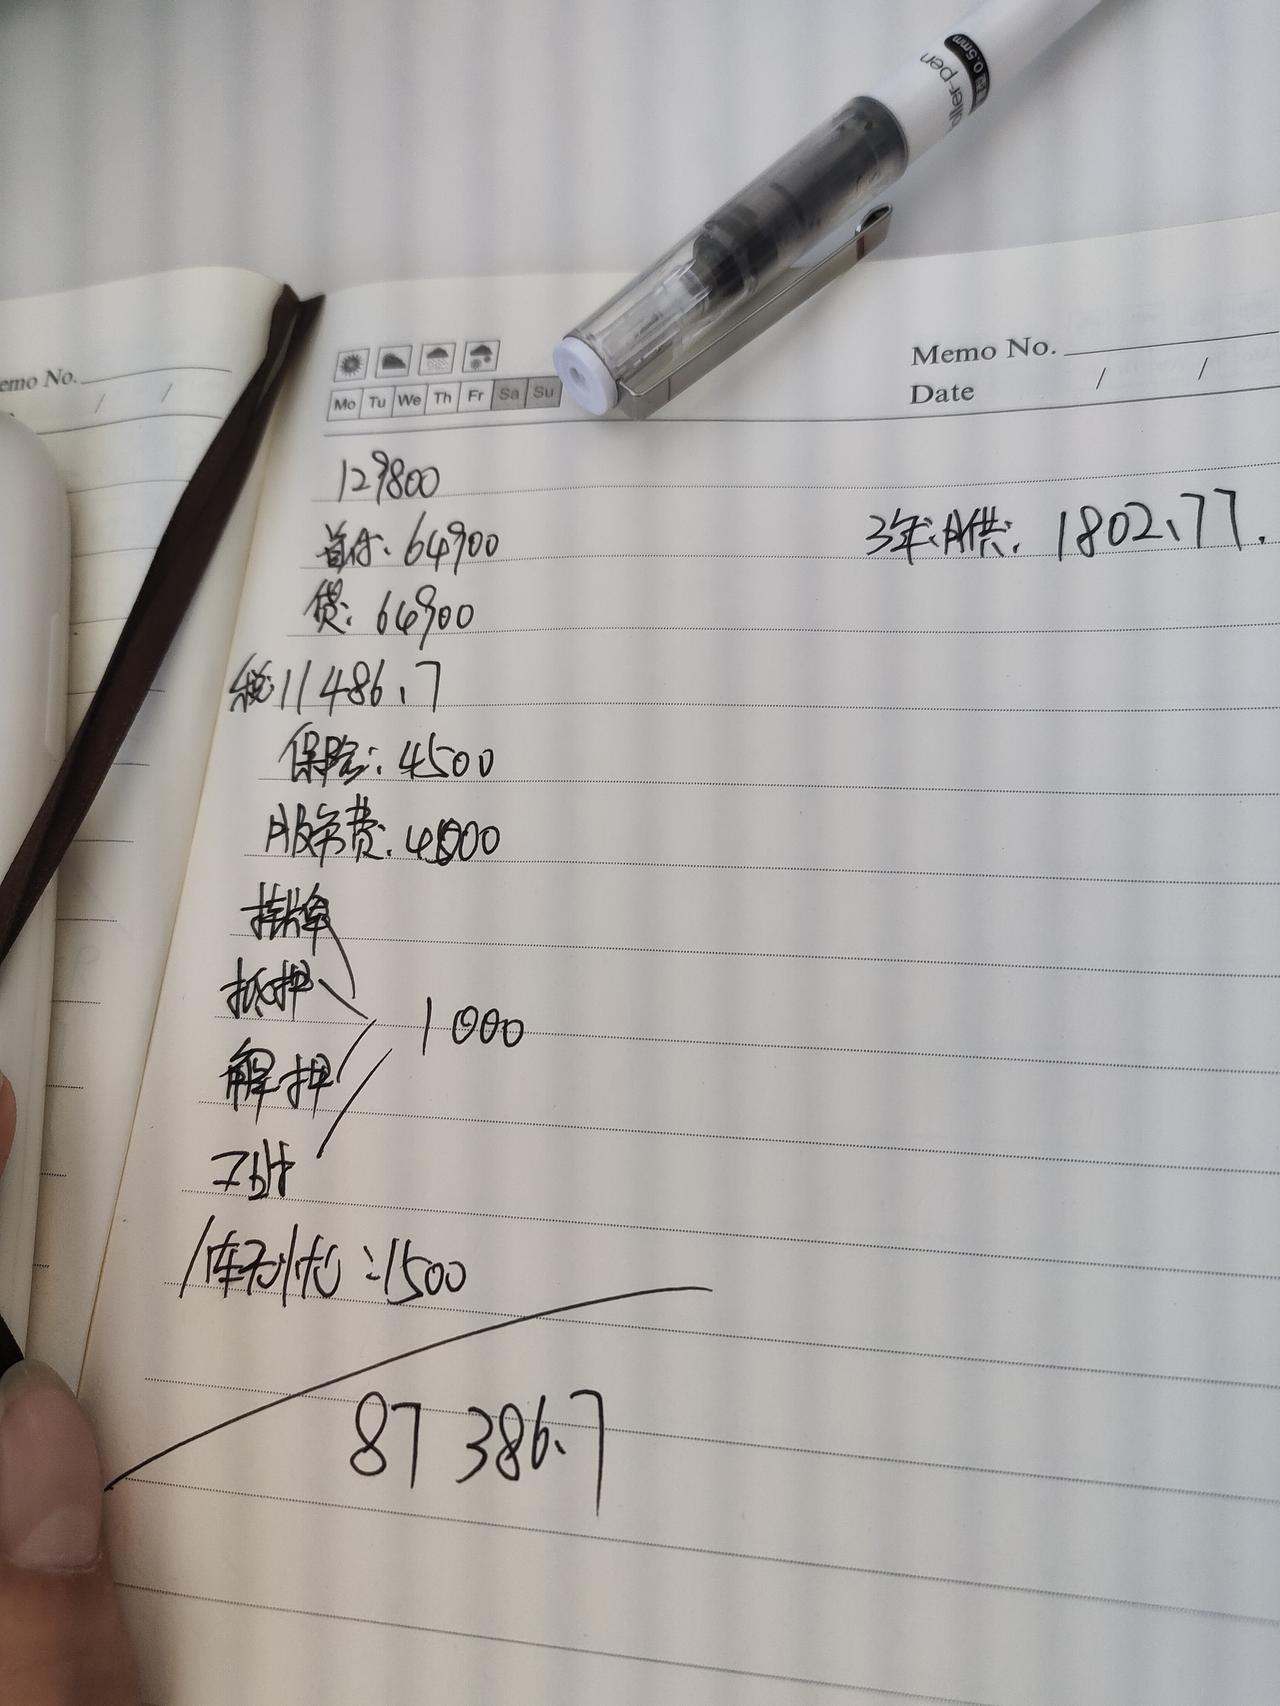 oller-pen
0.5mm
emo No.
/ /
Mo Tu We Th Fr Sa Su
Memo No.
Date / /
129800
首付: 64900
3年:月供: 1802.77.
贷: 64900
税:11486.7
保险: 4500
服务费: 4000
挂牌
抵押
1000
解押
无忧:1500
87 386.7